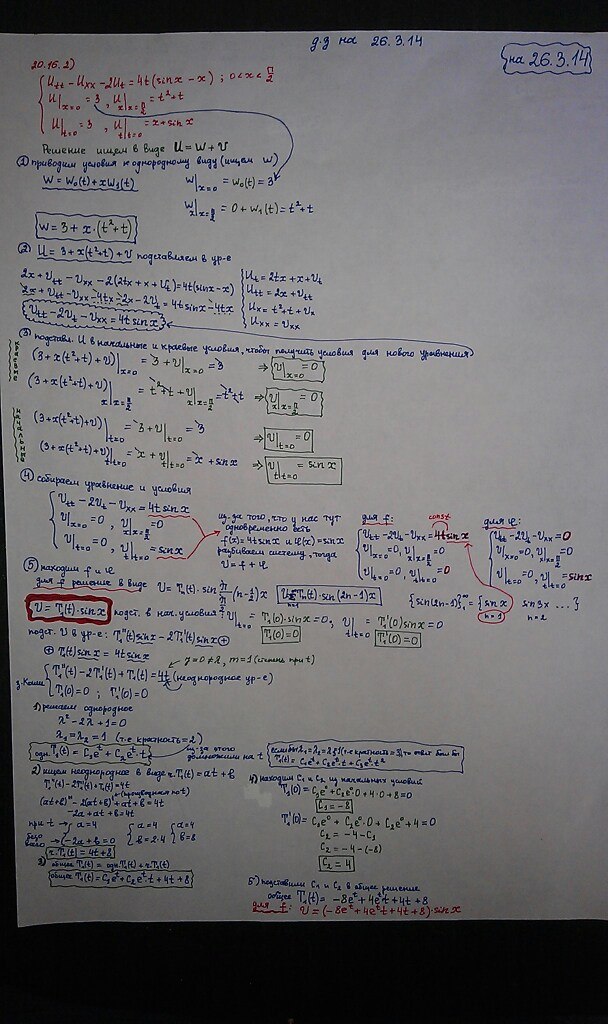 д.з на 26.3.14
на 26.3.14
20.16.2)
U_tt - U_xx - 2U_t = 4t(sinx - x) ; 0 < x < π/2
U|x=0 = 3 , U_x|x=π/2 = t² + t
U|t=0 = 3 , U_t|t=0 = x + sinx
Решение ищем в виде U = W + V
① приводим условия к однородному виду (ищем W)
W = W₀(t) + xW₁(t)
W|x=0 = W₀(t) = 3
W_x|x=π/2 = 0 + W₁(t) = t² + t
W = 3 + x·(t² + t)
② U = 3 + x(t² + t) + V подставляем в ур-е
2x + V_tt - V_xx - 2(2tx + x + V_t) = 4t(sinx - x)
2x + V_tt - V_xx - 4tx - 2x - 2V_t = 4tsinx - 4tx
V_tt - 2V_t - V_xx = 4tsinx
U_t = 2tx + x + V_t
U_tt = 2x + V_tt
U_x = t² + t + V_x
U_xx = V_xx
③ подставл. U в начальные и краевые условия, чтобы получить условия для нового уравнения
краевые
(3 + x(t² + t) + V)|x=0 = 3 + V|x=0 = 3 ⇒ V|x=0 = 0
(3 + x(t² + t) + V)_x|x=π/2 = t² + t + V_x|x=π/2 = t² + t ⇒ V_x|x=π/2 = 0
начальные
(3 + x(t² + t) + V)|t=0 = 3 + V|t=0 = 3 ⇒ V|t=0 = 0
(3 + x(t² + t) + V)_t|t=0 = x + V_t|t=0 = x + sinx ⇒ V_t|t=0 = sinx
④ собираем уравнение и условия
V_tt - 2V_t - V_xx = 4tsinx
V|x=0 = 0 , V_x|x=π/2 = 0
V|t=0 = 0 , V_t|t=0 = sinx
из-за того, что у нас тут
одновременно есть
f(x) = 4tsinx и φ(x) = sinx
разбиваем систему, тогда
V = f + φ
для f:
const
V_tt - 2V_t - V_xx = 4tsinx
V|x=0 = 0, V_x|x=π/2 = 0
V|t=0 = 0, V_t|t=0 = 0
для φ:
V_tt - 2V_t - V_xx = 0
V|x=0 = 0, V_x|x=π/2 = 0
V|t=0 = 0, V_t|t=0 = sinx
⑤ находим f и φ
для f решение в виде
{sin(2n-1)}₁^∞ = {sinx sin3x ...}
n=1 n=2
V = T₁(t)·sinx подст. в нач. условия V|t=0 = T₁(0)·sinx = 0, V_t|t=0 = T₁'(0)sinx = 0
T₁(0) = 0 T₁'(0) = 0
подст. V в ур-е: T₁''(t)sinx - 2T₁'(t)sinx ⊕
⊕ T₁(t)sinx = 4tsinx
γ = 0 ≠ λ, m = 1 (степень при t)
з. Коши
T₁''(t) - 2T₁'(t) + T₁(t) = 4t (неоднородное ур-е)
T₁(0) = 0 ; T₁'(0) = 0
1) решаем однородное
λ² - 2λ + 1 = 0
λ₁ = λ₂ = 1 (т.е кратность = 2)
одн. T₁(t) = C₁eᵗ + C₂eᵗ·t
из-за этого
домножаем на t
2) ищем неоднородное в виде ч.T₁(t) = at + b
T₁''(t) - 2T₁'(t) + T₁(t) = 4t
(at+b)'' - 2(at+b)' + at + b = 4t
-2a + at + b = 4t
при t → a = 4
-2a + b = 0
a = 4
b = 2·4
a = 4
b = 8
ч.T₁(t) = 4t + 8
3) общее T₁(t) = одн.T₁(t) + ч.T₁(t)
общее T₁(t) = C₁eᵗ + C₂eᵗ·t + 4t + 8
4) находим C₁ и C₂ из начальных условий
T₁(0) = C₁e⁰ + C₂e⁰·0 + 4·0 + 8 = 0
C₁ = -8
T₁'(0) = C₁e⁰ + C₂e⁰·0 + C₂e⁰ + 4 = 0
C₂ = -4 - C₁
C₂ = -4 - (-8)
C₂ = 4
5) подставим C₁ и C₂ в общее решение
общее T₁(t) = -8eᵗ + 4eᵗt + 4t + 8
для f: V = (-8eᵗ + 4eᵗt + 4t + 8)·sinx